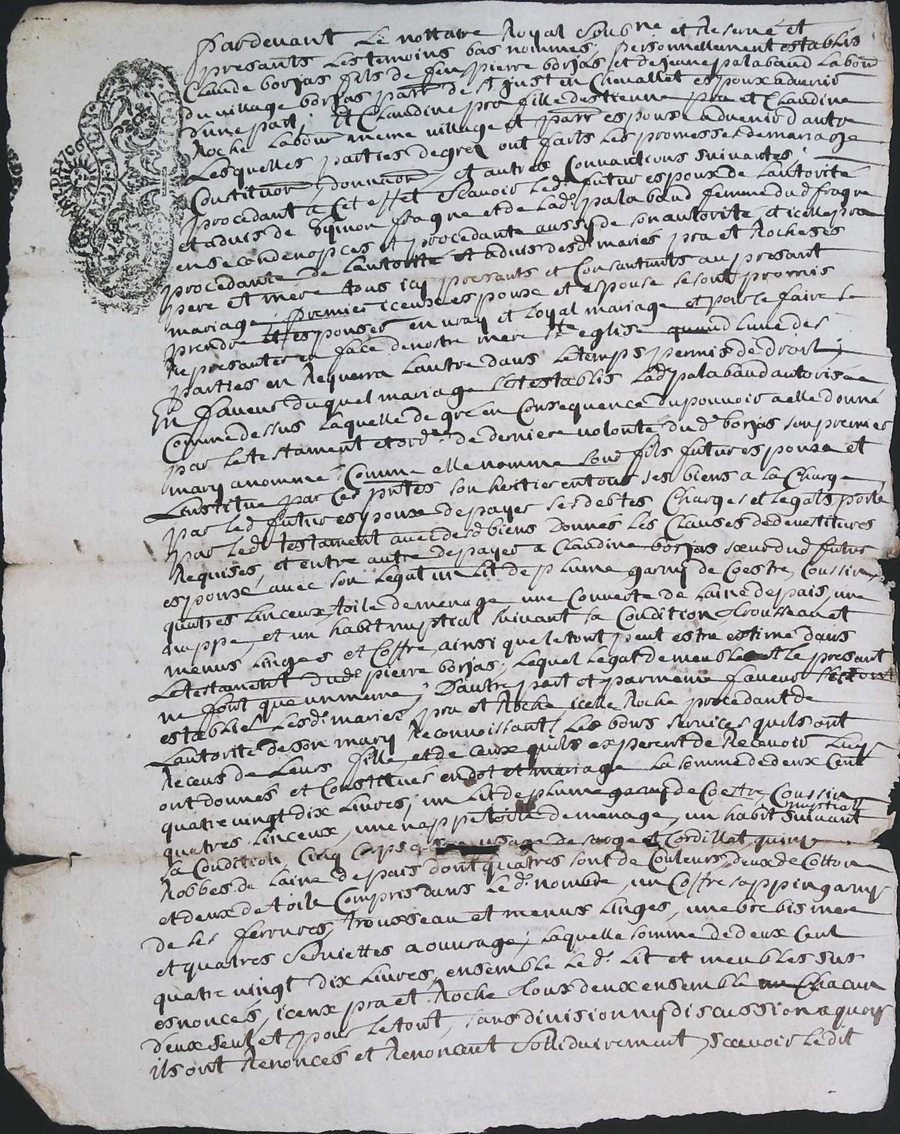 Pardevant Le nottaire Royal Soubné et Reservé et
presants Les temoins bas nommés, personnellement establis
Claude borjas fils de feu pierre borjas et de jeane palabaud Labour
du village borjas parr de st just en Chevallet espoux advenir
d'une part, Et Claudine pra fille destienne pra et Claudine
Roche Labour meme village et parr espouse advenir d'autre
Lesquelles parties de gré ont faits Les promesses de mariage
Constituõn donnaõn et autres Convantions suivantes;
procedant a Cet effet Scavoir Led. futur espoux de Lautorité
et advis de fragne et de Lad. palabaud femme dud fragne
en secondes nopces et procedante aussy de son autorité, et icelle pra
procedante de Lautorité et advis desd. mariés pra et Roche ses
pere et mere tous icy presants et Consantants au presant
mariage, premier iceux espoux et espouse se sont promis
prendre et espouser en vray et Loyal mariage et pour ce faire se
Representer en face de nostre mere ste eglise quand Lune des
parties en Requerra Lautre dans Le temps permis de droit;
En faveur duquel mariage sest establis Lad. palabaud autorisée
Comme dessus Laquelle de gré en Consequence du pouvoir a elle donné
par Le testament et ord. de derniere volonté dud. borjas son premier
mary a nommé, Comme elle nomme Led. fils futur espoux et
Linstitue par Ces pntes son heritier en tous ses biens a La Charge
par Led. futur espoux de payer ses debtes Charges et Legats porté
par Led. testament avec desd biens donnés Les Clauses de devestitures
Requises, et entre autre de payer a Claudine borjas soeur dud futur
espoux, avec son Legat un Lit de plume garny de Coestre, Coussin,
quatres Linceux toile de menage une Couverte de Laine de pais, une
nappe, et un habit nuptial suivant sa Condition trousseau et
menus Linges et Coffre, ainsi que le tout peut estre estimé dans
Le testament dud. pierre borjas, Lequel Legat de meuble et Le presant
ne font que un meme; Dautre part et par meme faveur se sont
establis Lesd. mariés pra et Roche icelle Roche procedant de
Lautorité de son mary Reconnoissant Les bons services quils ont
Receus de Leurs fille, et de Ceux quils esperent de Recevoir Luy
ont donnés et Constitués en dot et mariage La somme de deux Cent
quatre vingt dix Livres, un Lit de plume garny de Coestre Coussin
quatres Linceux, une nappe toille de menage, un habit nuptial suivant
sa Condition, Cinq Corps de sarge et Cordillat, quinze
Robbes de Laine de pais dont quatres sont de Couleurs, deux de Cotton
et deux de toile Compris dans Le d. nombre, un Coffre sappin garny
de ses ferrures, trousseau et menus Linges, une brebis mere
et quatres serviettes a ouvrage, Laquelle somme de deux Cent
quatre vingt dix Livres, ensemble Le d. Lit et meubles sus
esnoncés, iceux pra et Roche tous deux ensemble Chacun
d'eux seul et pour Le tout, sans division ny discussion a quoy
ils ont Renoncés et Renoncent Sollidairement, scavoir Le dit